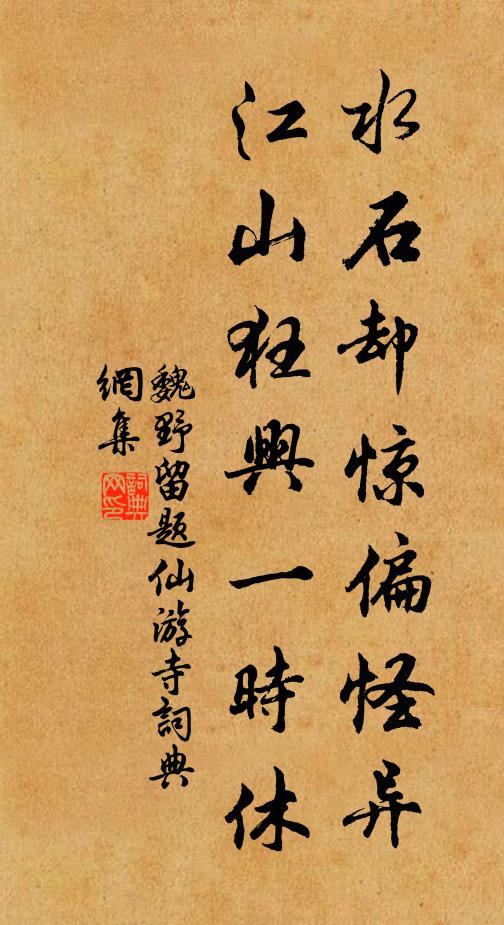 水石却惊偏怪异
江山狂興一時休
魏野留题仙游寺詞典
網集
詞典
网印